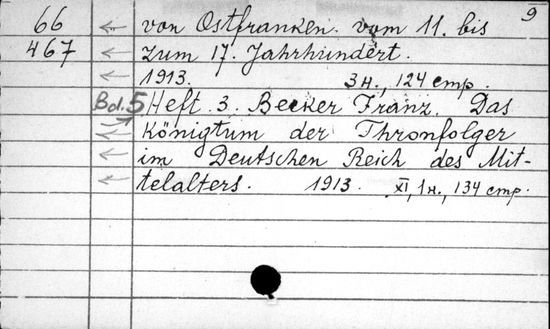 9
66 ← von Ostfranken vom 11. bis
467 ← zum 17. Jahrhundert.
← 1913. 3 н., 124 стр.
Bd. 5 Heft 3. Becker Franz. Das
Königtum der Thronfolger
← im Deutschen Reich des Mit-
← telalters. 1913. XI, 1 н., 134 стр.